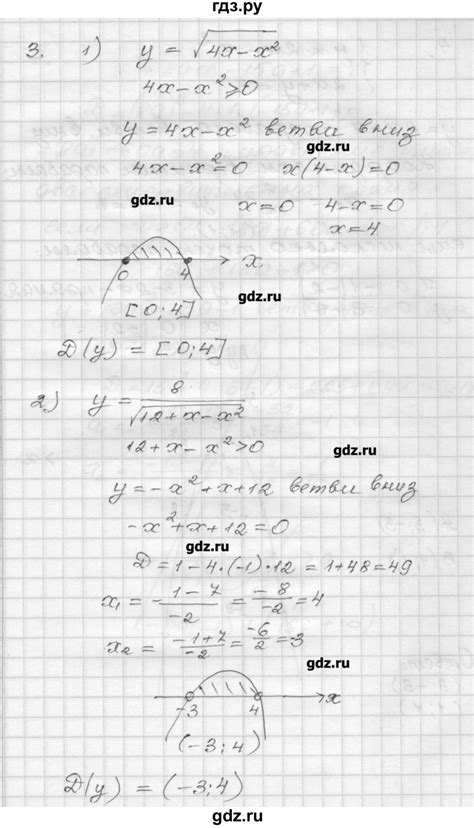 гдз.ру
3. 1) y = √(4x-x²)
4x-x²⩾0
gdz.ru
y=4x-x² ветви вниз
4x-x²=0 x(4-x)=0
gdz.ru
x=0 4-x=0
x=4
gdz.ru
0 4 x
[0;4]
gdz.ru
D(y) = [0;4]
2) y = 8/√(12+x-x²)
gdz.ru
12+x-x²>0
gdz.ru
y=-x²+x+12 ветви вниз
-x²+x+12=0
gdz.ru
D=1-4·(-1)·12=1+48=49
x₁=-\frac{1-7}{-2}=\frac{-8}{-2}=4
gdz.ru
x₂=\frac{-1+7}{-2}=\frac{-6}{2}=-3
gdz.ru
-3 4 x
gdz.ru
(-3;4)
D(y) = (-3;4)
gdz.ru
гдз.ру